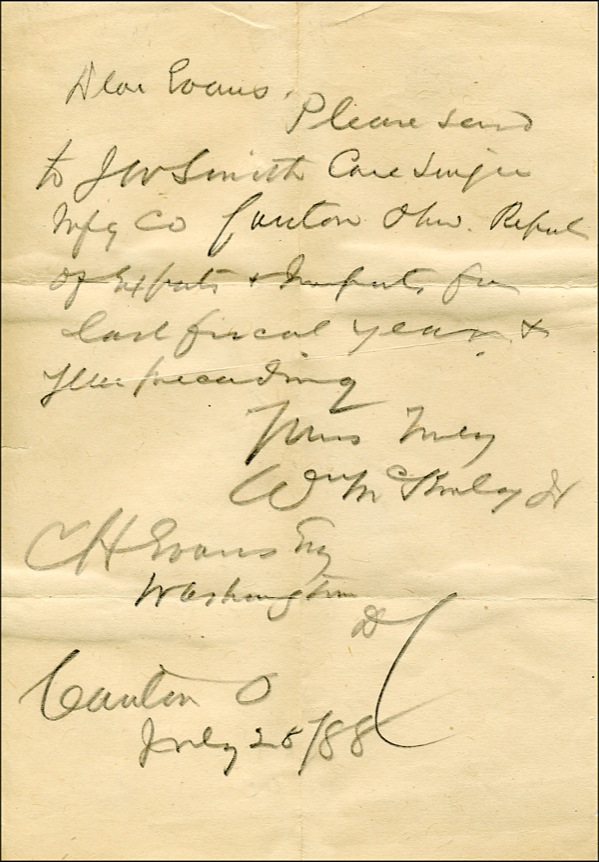 Dear Evans,
Please send
to J W Smith Care Singer
Mfg Co Canton Ohio. Report
of Exports & Imports for
last fiscal year &
year preceding
Yours Truly
Wm McKinley Jr
C H Evans Esq
Washington
D C
Canton O
July 25/88